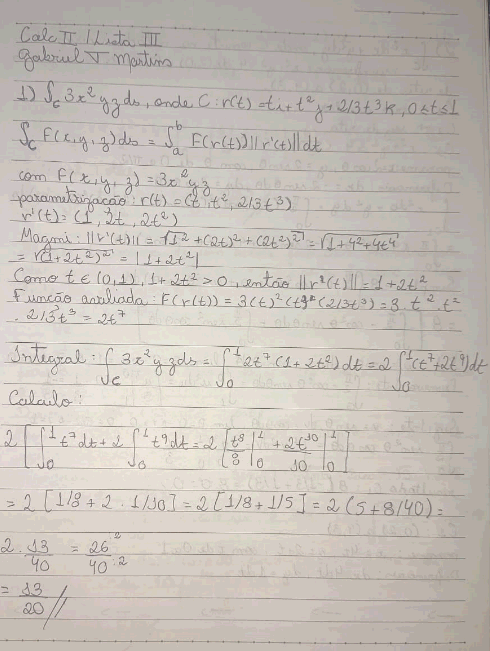 Calc II / Lista III
Gabriel V Martins
1) ∫c 3x²yz ds, onde C: r(t) = ti + t²j + 2/3t³k, 0≤t≤1
∫c F(x,y,z)ds = ∫a^b F(r(t))||r'(t)||dt
com F(x,y,z) = 3x²yz
parametrização: r(t) = (t, t², 2/3t³)
r'(t) = (1, 2t, 2t²)
||r'(t)|| = √1² + (2t)² + (2t²)² = √1+4²+4t⁴
= √(1+2t²)² = |1+2t²|
Como t ∈ (0,1), 1+2t² > 0, então ||r'(t)|| = 1+2t²
Função avaliada: F(r(t)) = 3(t)²(t)²(2/3t³) = 3. t². t²
. 2/3t³ = 2t⁷
Integral: ∫c 3x²yzds = ∫0^1 2t⁷(1+2t²)dt = 2∫0^1(t⁷+2t⁹)dt
Calculo:
2[∫0^1 t⁷dt + 2∫0^1 t⁹dt = 2[t⁸/8|0^1 + 2t¹⁰/10|0^1]
= 2[1/8 + 2 . 1/10] = 2[1/8 + 1/5] = 2(5+8/40) =
2. 13/40 = 26/40 :2
= 13/20 //